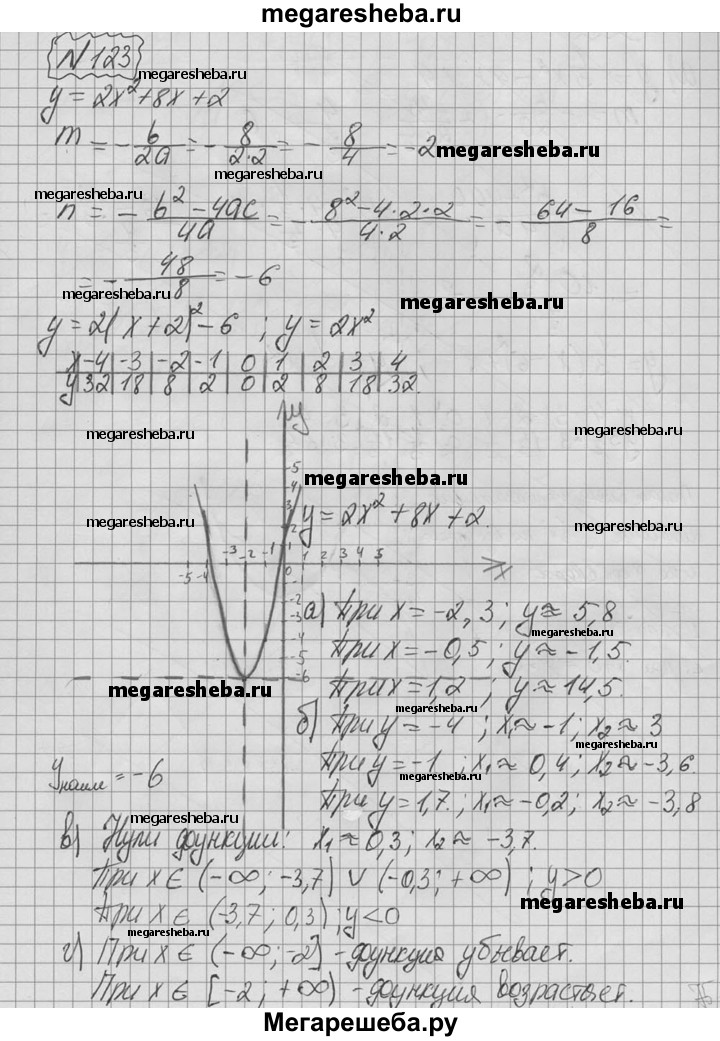 megaresheba.ru
N 123
megaresheba.ru
y = 2x²+8x+2
m = - b/2a = - 8/2·2 = - 8/4 = -2
megaresheba.ru
megaresheba.ru
megaresheba.ru
n = - b²-4ac/4a = - 8²-4·2·2/4·2 = - 64-16/8 =
= - 48/8 = -6
megaresheba.ru
megaresheba.ru
y = 2(x+2)²-6 ; y = 2x²
x -4 -3 -2 -1 0 1 2 3 4
y 32 18 8 2 0 2 8 18 32
y
megaresheba.ru
megaresheba.ru
megaresheba.ru
megaresheba.ru
megaresheba.ru
5
4
3
2
1
y = 2x²+8x+2.
-5 -4 -3 -2 -1 0 1 2 3 4 5
x
-2
-3
-4
-5
-6
а) При x = -2,3 ; y ≈ 5,8
megaresheba.ru
При x = -0,5 ; y ≈ -1,5.
При x = 1,2 ; y ≈ 14,5.
megaresheba.ru
megaresheba.ru
б) При y = -4 ; x₁ ≈ -1 ; x₂ ≈ 3
При y = -1 ; x₁ ≈ 0,4 ; x₂ ≈ -3,6.
megaresheba.ru
yнаим = -6
При y = 1,7. ; x₁ ≈ -0,2 ; x₂ ≈ -3,8
megaresheba.ru
в) Нули функции: x₁ ≈ 0,3 ; x₂ ≈ -3,7.
При x ∈ (-∞; -3,7) ∪ (-0,3; +∞) ; y>0
megaresheba.ru
При x ∈ (-3,7 ; 0,3) ; y<0
megaresheba.ru
г) При x ∈ (-∞; -2] - функция убывает.
При x ∈ [-2 ; +∞) - функция возрастает.
Мегарешеба.ру